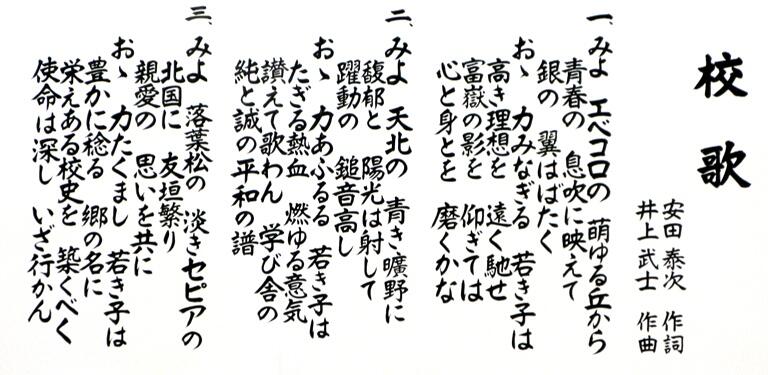 校歌
安田 泰次 作詞
井上 武士 作曲
一、みよ エベコロの 萌ゆる丘から
青春の 息吹に映えて
銀の 翼はばたく
おゝ 力みなぎる 若き子は
高き理想を 遠く馳せ
富嶽の影を 仰ぎては
心と身とを 磨くかな
二、みよ 天北の 青き曠野に
馥郁と 陽光は射して
躍動の 鎚音高し
おゝ 力あふるる 若き子は
たぎる熱血 燃ゆる意気
讃えて歌わん 学び舎の
純と誠の 平和の譜
三、みよ 落葉松の 淡きセピアの
北国に 友垣繁り
親愛の 思いを共に
おゝ 力たくまし 若き子は
豊かに稔る 郷の名に
栄えある校史を 築くべく
使命は深し いざ行かん